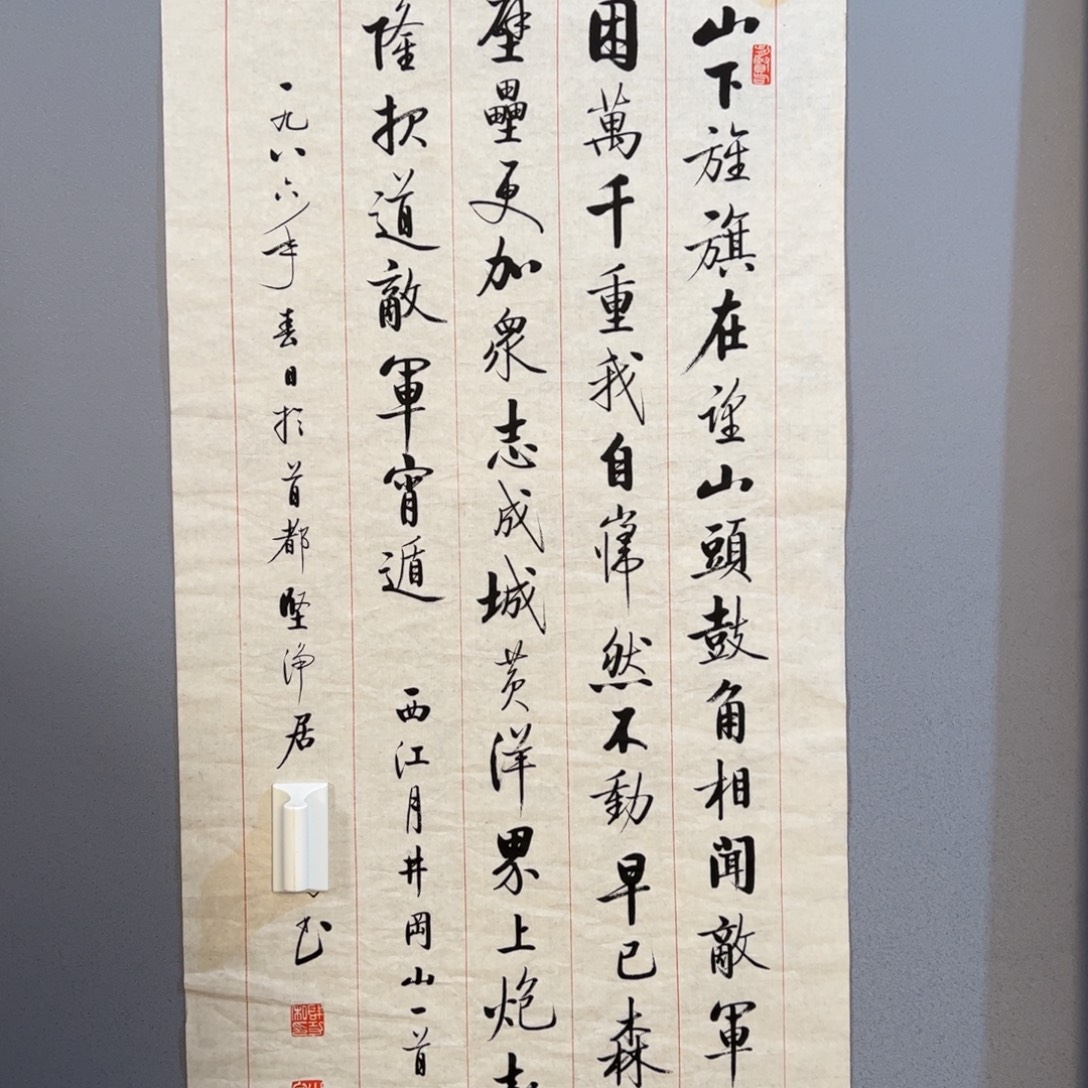 山下旌旗在望山頭鼓角相聞敵軍
困萬千重我自巋然不動早已森
壁壘更加衆志成城黄洋界上炮
隆报道敵軍宵遁
西江月井岡山一首
一九八六年春日於首都堅净居